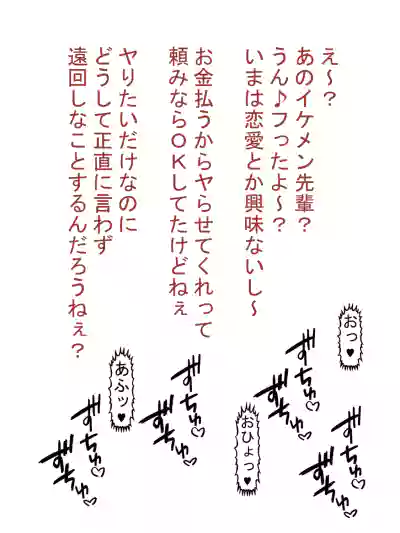 え～？
あのイケメン先輩？
うん♪フったよ～？
いまは恋愛とか興味ないし～
お金払うからヤらせてくれって
頼みならＯＫしてたけどねぇ
ヤりたいだけなのに
どうして正直に言わず
遠回しなことするんだろうねぇ？
おっ♥
ずちゅ♡
ずちゅ♡
ずちゅ♡
ずちゅ♡
おひょっ♥
ずちゅ♡
ずちゅ♡
あふッ♥
ずちゅ♡
ずちゅ♡